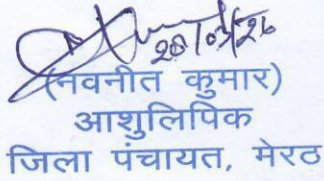 20/03/26
(नवनीत कुमार)
आशुलिपिक
जिला पंचायत, मेरठ